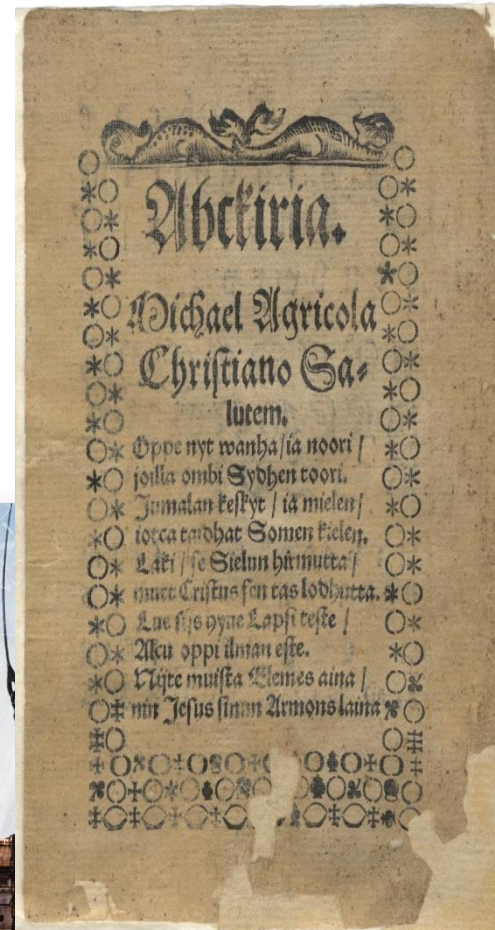 Abckiria.
Michael Agricola
Christiano Sa⸗
lutem.
Oppe nyt wanha/ia noori /
joilla ombi Sydhen toori.
Jumalan keskyt / iä mielen/
iotca taidhat Somen kielen.
Laki / se Sielun hirmutta/
mutt Cristus sen tas lodhutta.
Lue sijs hyue Lapsi teste /
Alcu oppi ilman este.
Nijte muista Elemes aina /
nin Jesus sinun Armons laina